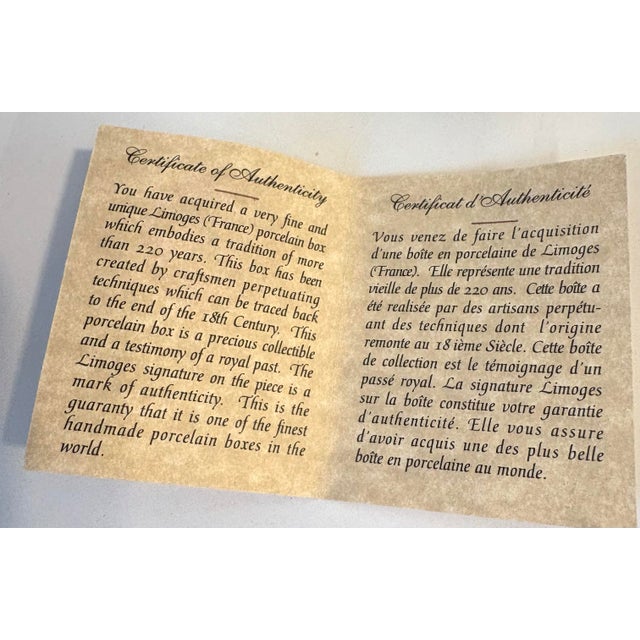 Certificate of Authenticity
You have acquired a very fine and
unique Limoges (France) porcelain box
which embodies a tradition of more
than 220 years. This box has been
created by craftsmen perpetuating
techniques which can be traced back
to the end of the 18th Century. This
porcelain box is a precious collectible
and a testimony of a royal past. The
Limoges signature on the piece is a
mark of authenticity. This is the
guaranty that it is one of the finest
handmade porcelain boxes in the
world.
Certificat d'Authenticité
Vous venez de faire l'acquisition
d'une boîte en porcelaine de Limoges
(France). Elle représente une tradition
vieille de plus de 220 ans. Cette boîte a
été realisée par des artisans perpétu-
ant des techniques dont l'origine
remonte au 18ième Siècle. Cette boîte
de collection est le témoignage d'un
passé royal. La signature Limoges
sur la boîte constitue votre garantie
d'authenticité. Elle vous assure
d'avoir acquis une des plus belle
boîte en porcelaine au monde.